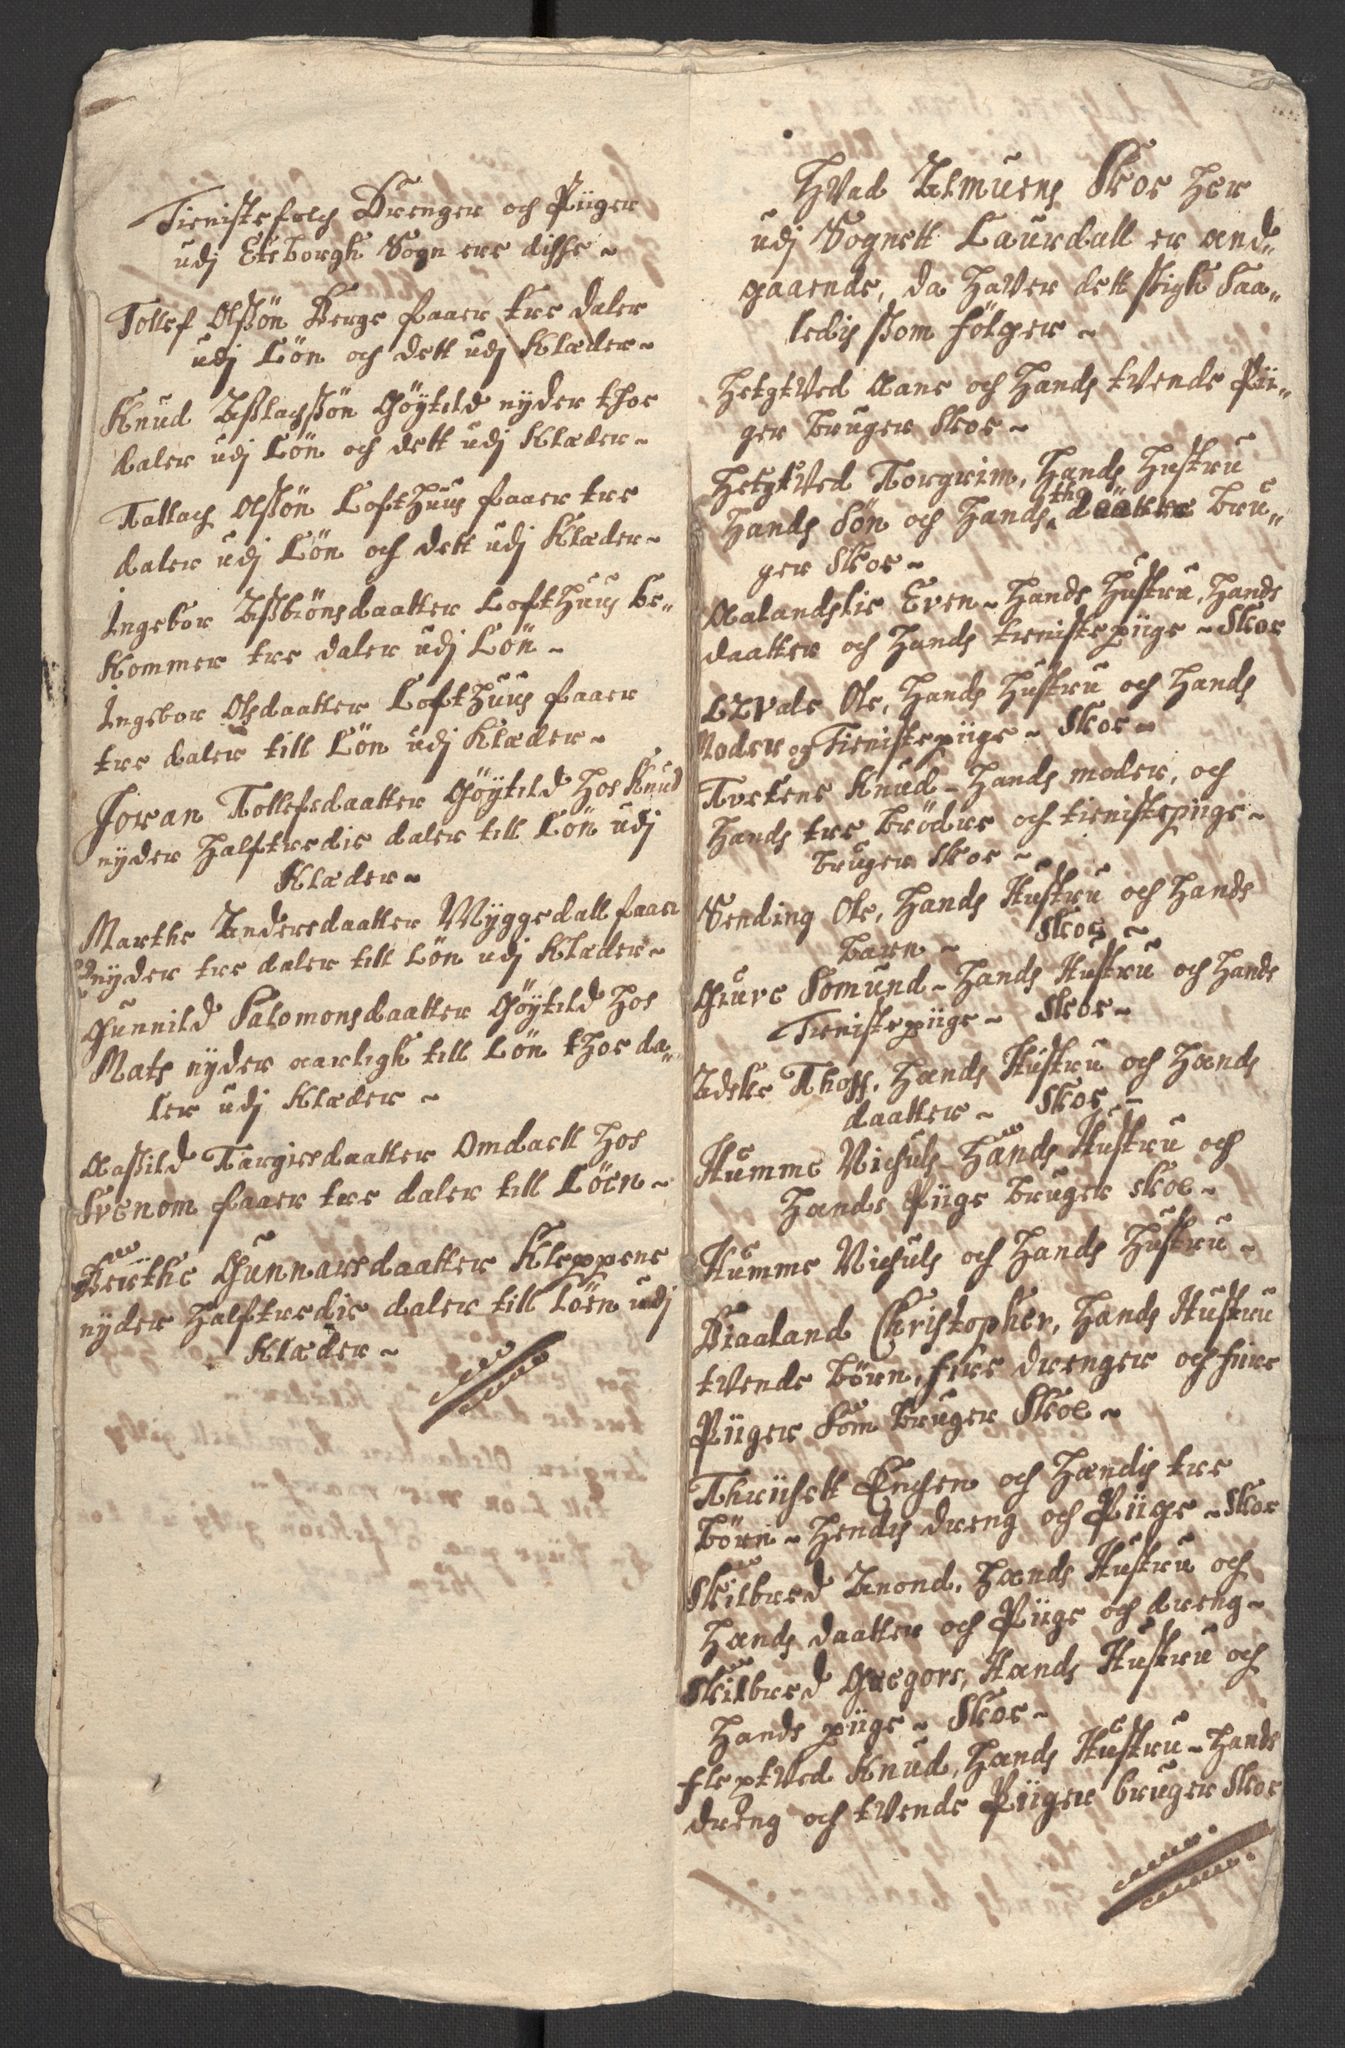 Tienistefolch Drenger och Piiger
udj Eteborgh Sogn ere disse ~
Tollef Olssön Berge faaer tre daler
udj Lön och dett udj Klæder ~
Knud Asslachssön Göytild nyder thoe
daler udj Lön och dett udj Klæder ~
Tallach Olssön Lofthuus faaer tre
daler udj Lön och dett udj Klæder ~
Ingebor Assbiönsdaatter Lofthuus be-
kommer tre daler udj Lön ~
Ingebor Olsdaatter Lofthuus faaer
tre daler till Lön udj Klæder ~
Joran Tollefsdaatter Göytild hos Knud
nyder halftredie daler till Lön udj
Klæder ~
Marthe Andersdaatter Myggedall faaer
nyder tre daler till Lön udj Klæder ~
Gunnild Salomonsdaatter Göytild hos
Mats nyder aarligh till Lön thoe da-
ler udj Klæder ~
Aassild Targiersdaatter Omdaell hos
Svenom faaer tre daler till Löen ~
Berthe Gunnarsdaatter Kleppene
nyder halftredie daler till Löen udj
Klæder ~
Hvad Almuens Skoe her
udj Sognett Laurdall er and-
gaaende, da haver dett sigh Saa-
ledis ssom fölger ~
Hetgtved Aane och hands tvende Pii-
ger bruger Skoe ~
Hetgtved Torgrim, hands hustru
hands Sön och hands tho döätter bru-
ger Skoe ~
Aalandslie Even ~ hands hustru, hands
daatter och hands tieniste piige ~ Skoe
Lzvale Ole, hands hustru och hands
Moder og Tienistepiige ~ Skoe ~
Tvetene Knud ~ hands moder, och
hands tre brödre och tienistepiige ~
bruger Skoe ~
Sending Ole, hands Hustru och hands
barn ~ Skoe ~
Giuve Somund ~ hands Hustru och hands
Tienistepiige ~ Skoe ~
Adske Thoff, hands Hustru och hands
daatter ~ Skoe ~
Humme Nichuls hands Hustru och
hands Piige bruger skoe ~
Humme Nichuls och hands hustru ~
Biaaland Christopher, hands Hustru
tvende börn, fire drenger och fiire
Piiger som bruger Skoe ~
Thriisett Enchen och hændis tre
börn ~ hendis dreng och Piige ~ Skoe
Skilbred Anond, hands Hustru och
hands daatter och Piige och dreng ~
Skilbred Gregors, Hands Hustru och
hands piige ~ Skoe ~
Fleptved Knud, hands Hustru ~ hands
dreng och tvende Piiger bruger Skoe